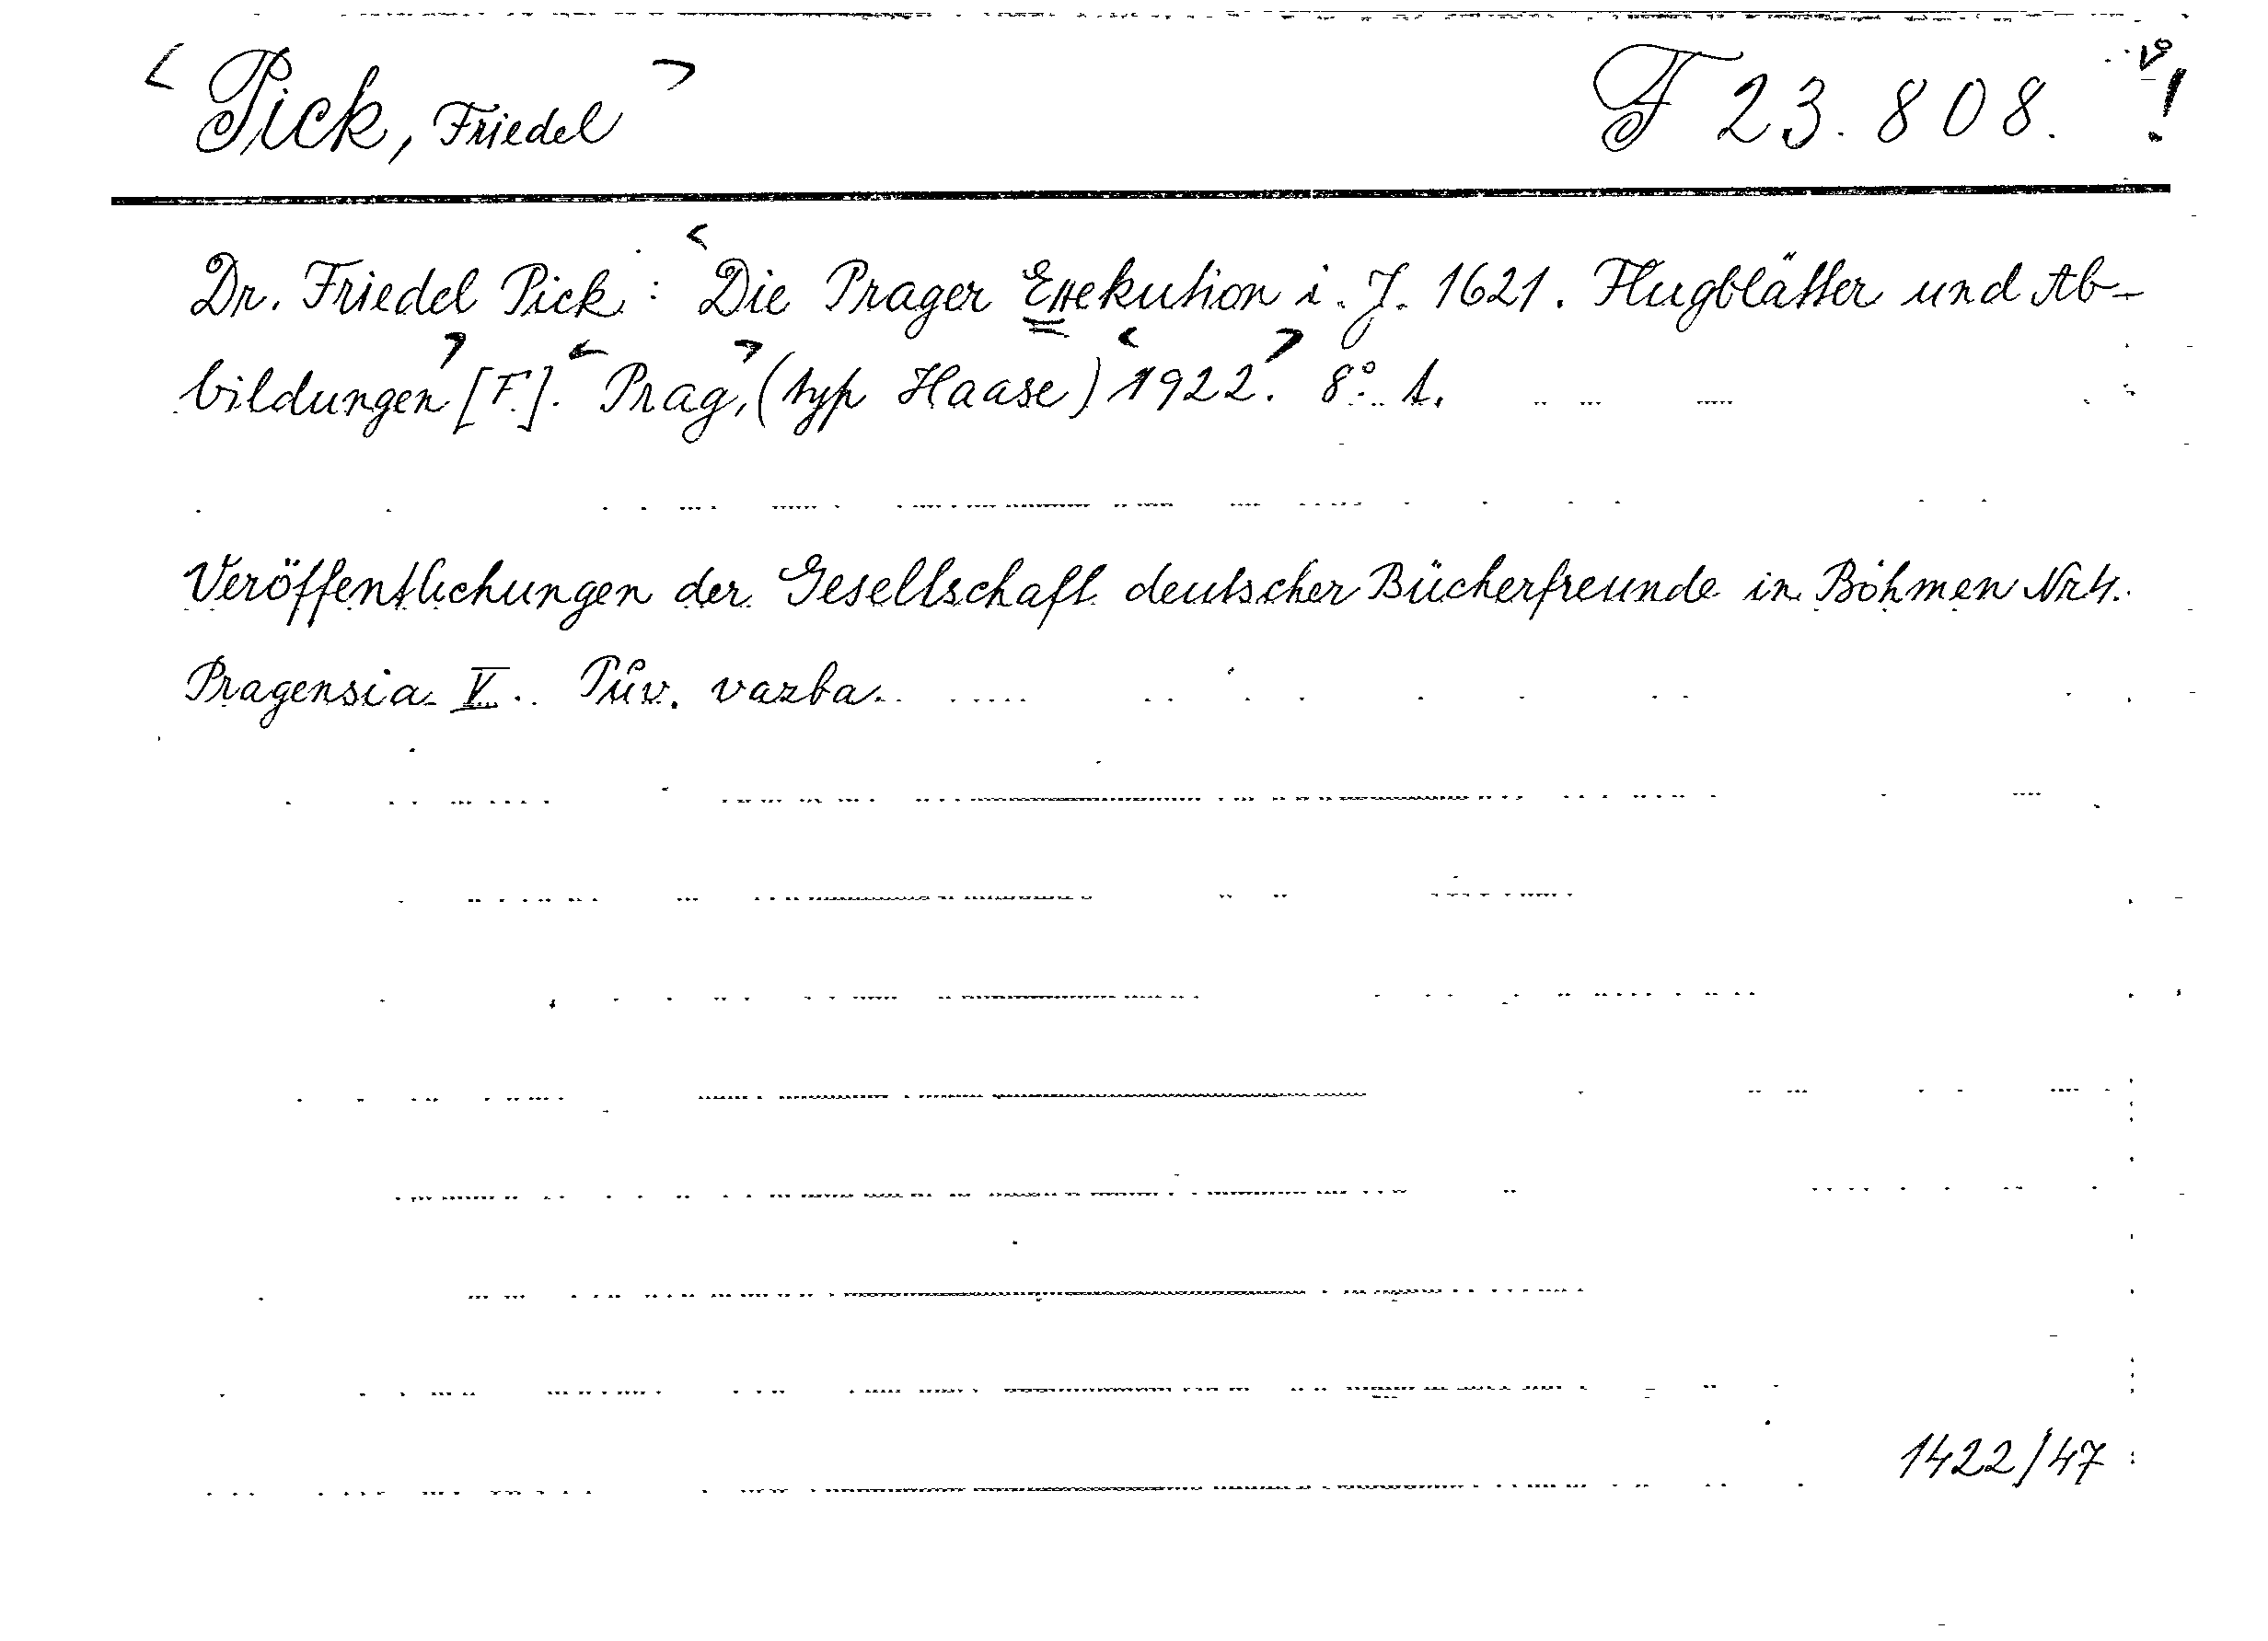 <Pick, Friedel> F 23.808. !
Dr. Friedel Pick: <Die Prager Exekution i. J. 1621. Flugblätter und Ab-
bildungen> [F.]. <Prag>, (typ Haase) <1922.> 8° 1.
Veröffentlichungen der Gesellschaft deutscher Bücherfreunde in Böhmen Nr 4.
Pragensia V. Pův. vazba.
1422/47